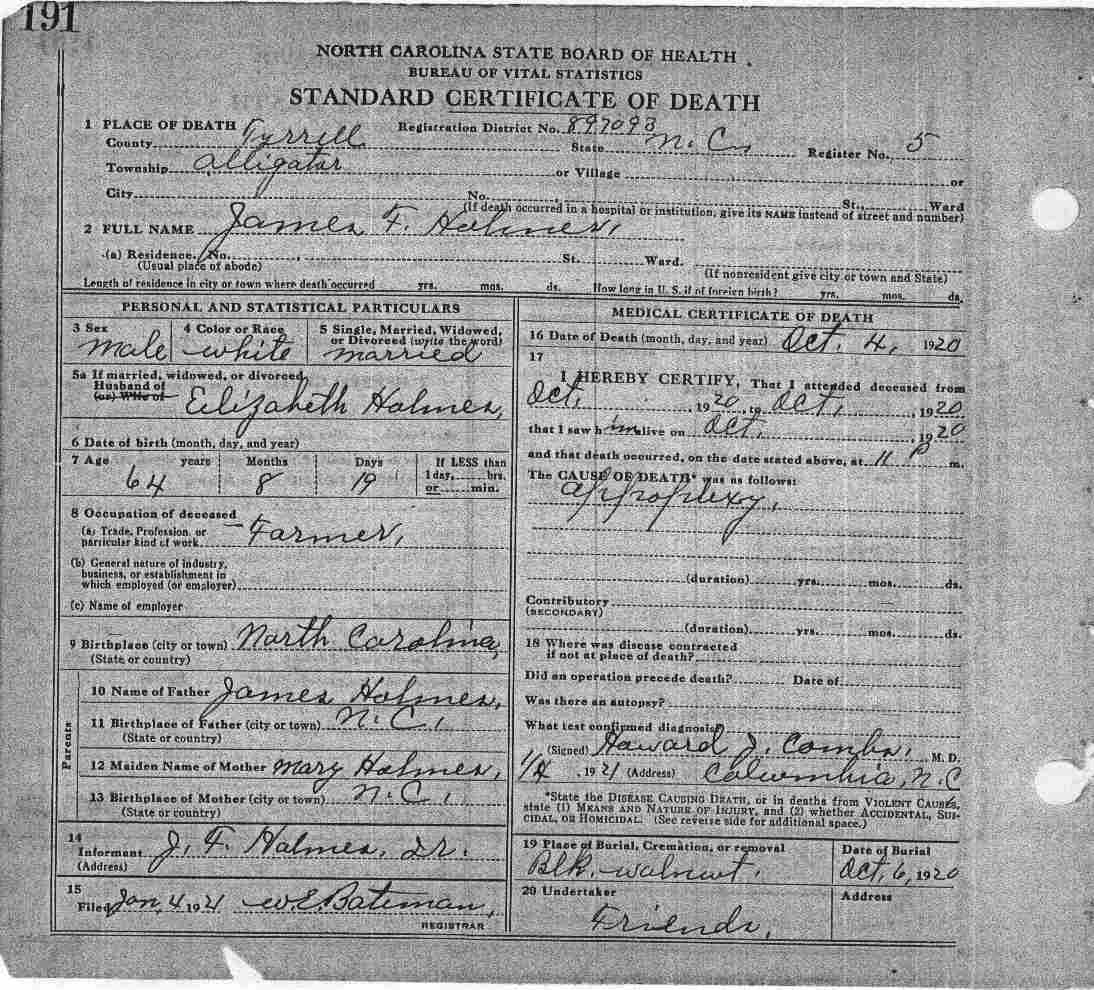 191
NORTH CAROLINA STATE BOARD OF HEALTH
BUREAU OF VITAL STATISTICS
STANDARD CERTIFICATE OF DEATH
1 PLACE OF DEATH Registration District No. 897093
County Tyrrell State N.C. Register No. 5
Township Alligator or Village or
City No. St., Ward
(If death occurred in a hospital or institution, give its NAME instead of street and number)
2 FULL NAME James F. Holmes,
(a) Residence. No. St. Ward.
(Usual place of abode) (If nonresident give city or town and State)
Length of residence in city or town where death occurred yrs. mos. ds. How long in U. S. if of foreign birth? yrs. mos. ds.
PERSONAL AND STATISTICAL PARTICULARS
3 Sex 4 Color or Race 5 Single, Married, Widowed,
or Divorced (write the word)
male white married
5a If married, widowed, or divorced
Husband of
(or) Wife of Elizabeth Holmes,
6 Date of birth (month, day, and year)
7 Age years Months Days If LESS than
1 day, hrs.
or min.
64 8 19
8 Occupation of deceased
(a) Trade, Profession, or
particular kind of work Farmer,
(b) General nature of industry,
business, or establishment in
which employed (or employer)
(c) Name of employer
9 Birthplace (city or town) North Carolina,
(State or country)
Parents
10 Name of Father James Holmes,
11 Birthplace of Father (city or town) N.C.,
(State or country)
12 Maiden Name of Mother Mary Holmes,
13 Birthplace of Mother (city or town) N.C.,
(State or country)
14
Informant J. F. Holmes, Jr.
(Address)
15
Filed Jan, 4 1921 W.E. Bateman,
REGISTRAR
MEDICAL CERTIFICATE OF DEATH
16 Date of Death (month, day, and year) Oct. 4, 1920
17
I HEREBY CERTIFY, That I attended deceased from
Oct, , 1920, to Oct, , 1920
that I saw him alive on Oct. , 1920
and that death occurred, on the date stated above, at 11 P m.
The CAUSE OF DEATH* was as follows:
appoplexy,
(duration) yrs. mos. ds.
Contributory
(SECONDARY)
(duration) yrs. mos. ds.
18 Where was disease contracted
if not at place of death?
Did an operation precede death? Date of
Was there an autopsy?
What test confirmed diagnosis?
(Signed) Howard J. Combs, M. D.
1/4, 1921 (Address) Columbia, N.C
*State the DISEASE CAUSING DEATH, or in deaths from VIOLENT CAUSES,
state (1) MEANS AND NATURE OF INJURY, and (2) whether ACCIDENTAL, SUI-
CIDAL, OR HOMICIDAL. (See reverse side for additional space.)
19 Place of Burial, Cremation, or removal Date of Burial
Blk. walnut. Oct. 6, 1920
20 Undertaker Address
Friends,